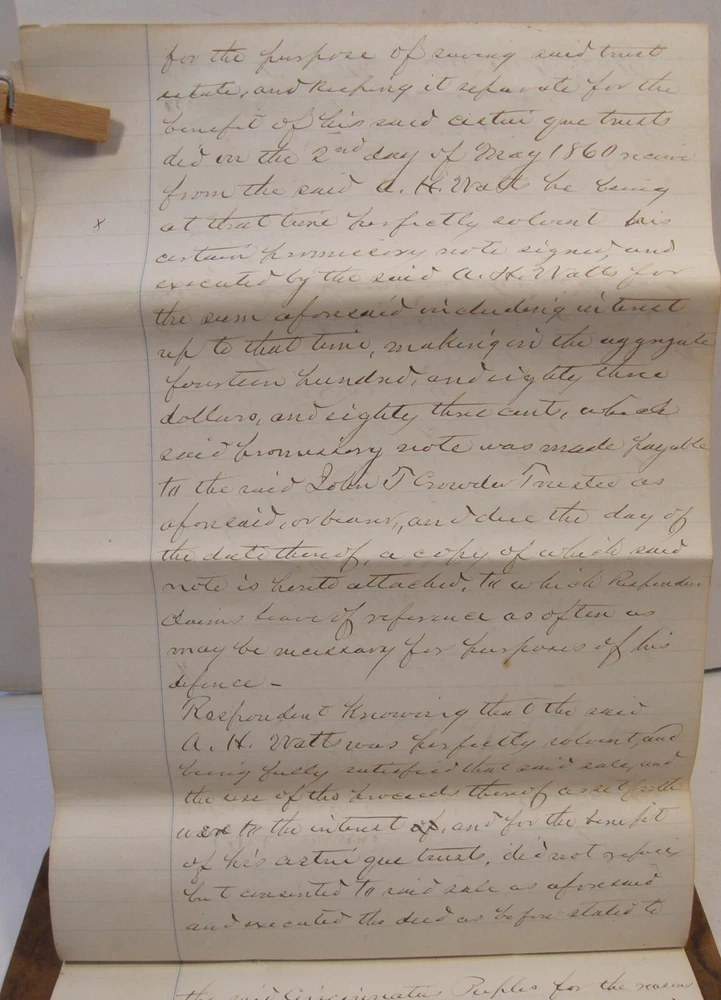 for the purpose of saving said trust
estate, and keeping it separate for the
benefit of his said cestui que trusts
did on the 2nd day of May 1860 receive
from the said A. H. Watts he being
x at that time perfectly solvent his
certain promissory note signed, and
executed by the said A. H. Watts for
the sum aforesaid including interest
up to that time, making in the aggregate
fourteen hundred, and eighty three
dollars, and eighty three cent, which
said promissory note was made payable
to the said John T Crowder Trustee as
aforesaid, or bearer, and due the day of
the date thereof, a copy of which said
note is hereto attached, to which Respondent
claims leave of reference as often as
may be necessary for purposes of his
defence -
Respondent Knowing that the said
A. H. Watts was perfectly solvent, and
being fully satisfied that said sale, and
the use of the proceeds thereof as set forth
to the interest of, and for the benefit
of his cestui que trusts, did not
but consented to said sale as aforesaid
and executed the deed as before stated to
the said Cincinnatus Peeples for the reason